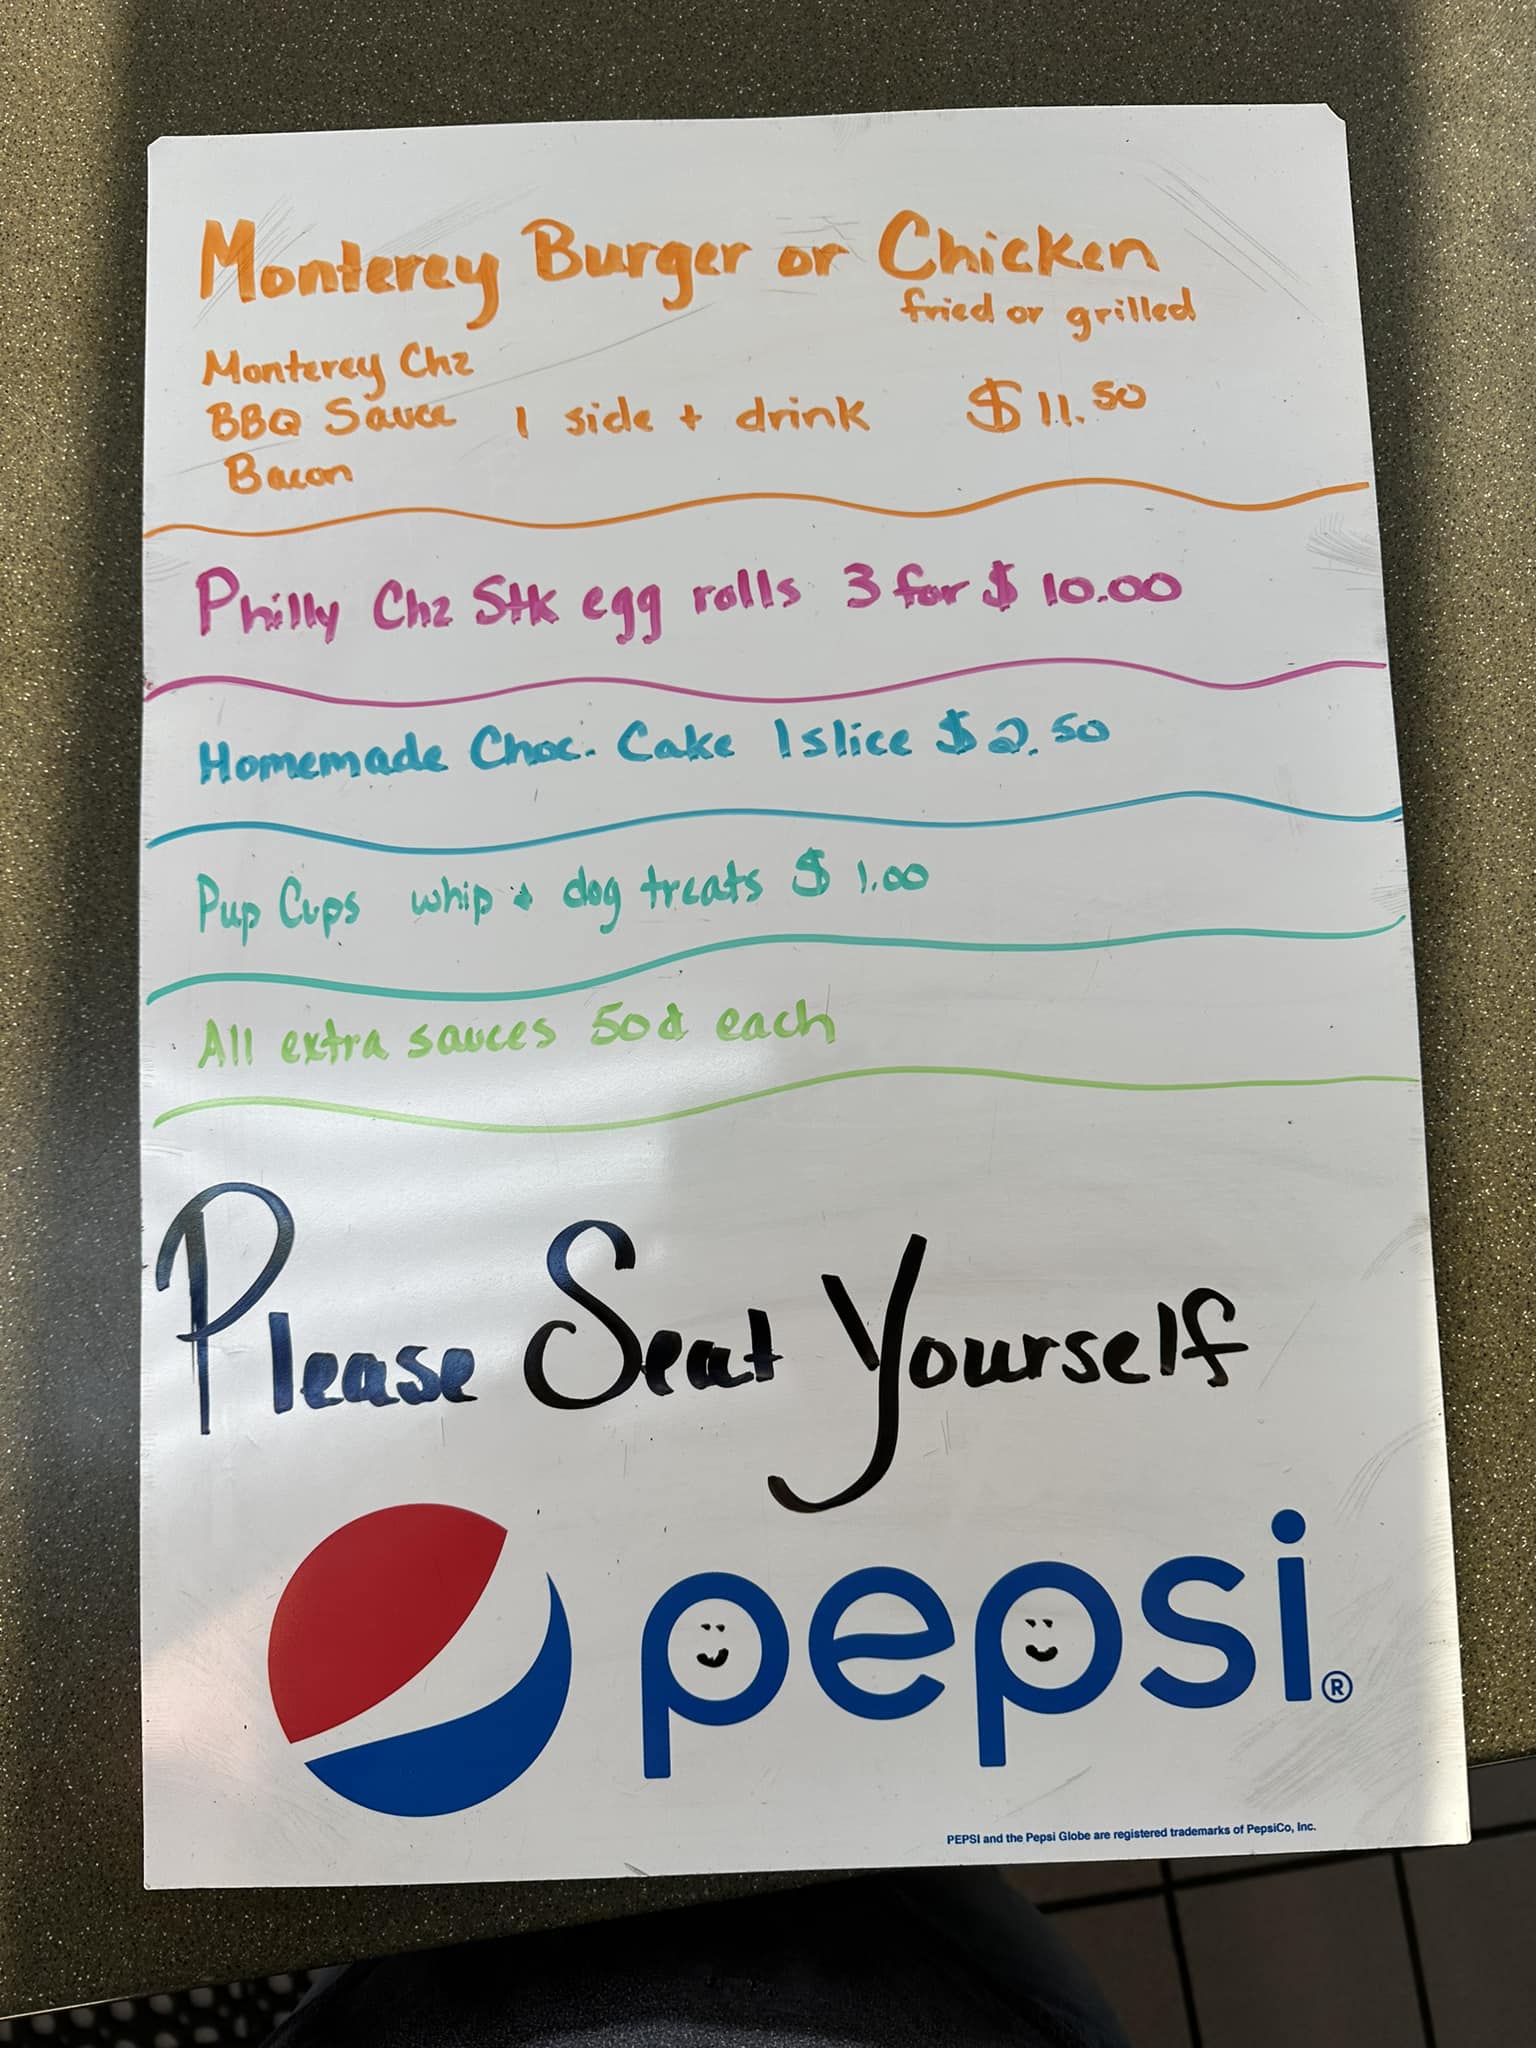 Monterey Burger or Chicken
fried or grilled
Monterey Chz
BBQ Sauce 1 side + drink $11.50
Bacon
Philly Chz Stk egg rolls 3 for $10.00
Homemade Choc. Cake 1 slice $2.50
Pup Cups whip + dog treats $1.00
All extra sauces 50¢ each
Please Seat Yourself
pepsi®
PEPSI and the Pepsi Globe are registered trademarks of PepsiCo, Inc.